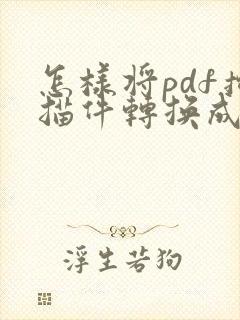 怎樣將pdf掃
描件轉換成
浮生若狗